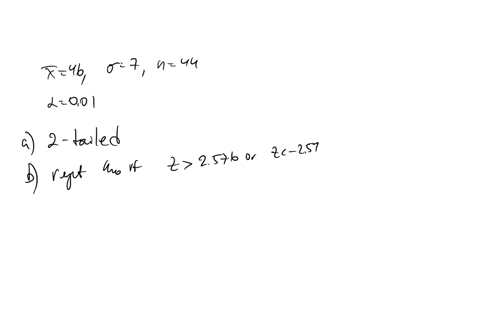 x̄=46, σ=7, n=44
α=0.01
a) 2-tailed
b) reject if z > 2.576 or z<-2.57